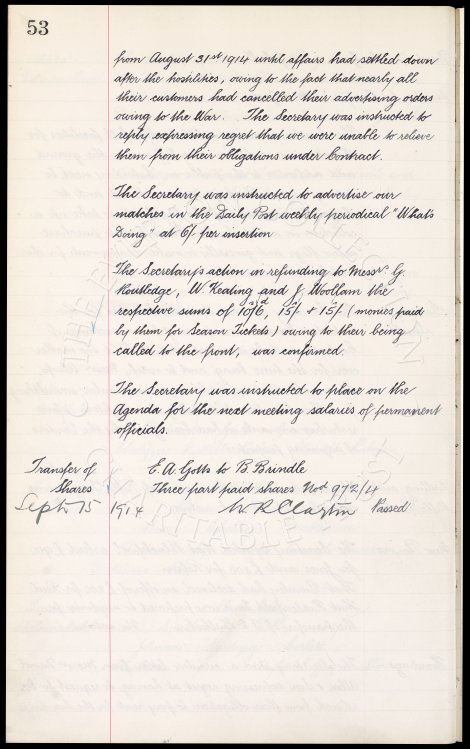 53
from August 31st 1914 until affairs had settled down
after the hostilities, owing to the fact that nearly all
their customers had cancelled their advertising orders
owing to the War. The Secretary was instructed to
reply expressing regret that we were unable to relieve
them from their obligations under Contract.
The Secretary was instructed to advertise our
matches in the Daily Post weekly periodical "What's
Doing" at 6/- per insertion
The Secretary's action in refunding to Messrs G.
Routledge, W. Keating and J. Woollam the
respective sums of 10/6d, 15/- + 15/- (monies paid
by them for Season Tickets) owing to their being
called to the front, was confirmed.
The Secretary was instructed to place on the
Agenda for the next meeting salaries of permanent
officials.
Transfer of E. A. Gotts to B. Brindle
Shares Three part paid shares Nos 972/4
Passed
Sept 15 1914 W. R. Clayton
THE EVERTON COLLECTION
CHARITABLE TRUST